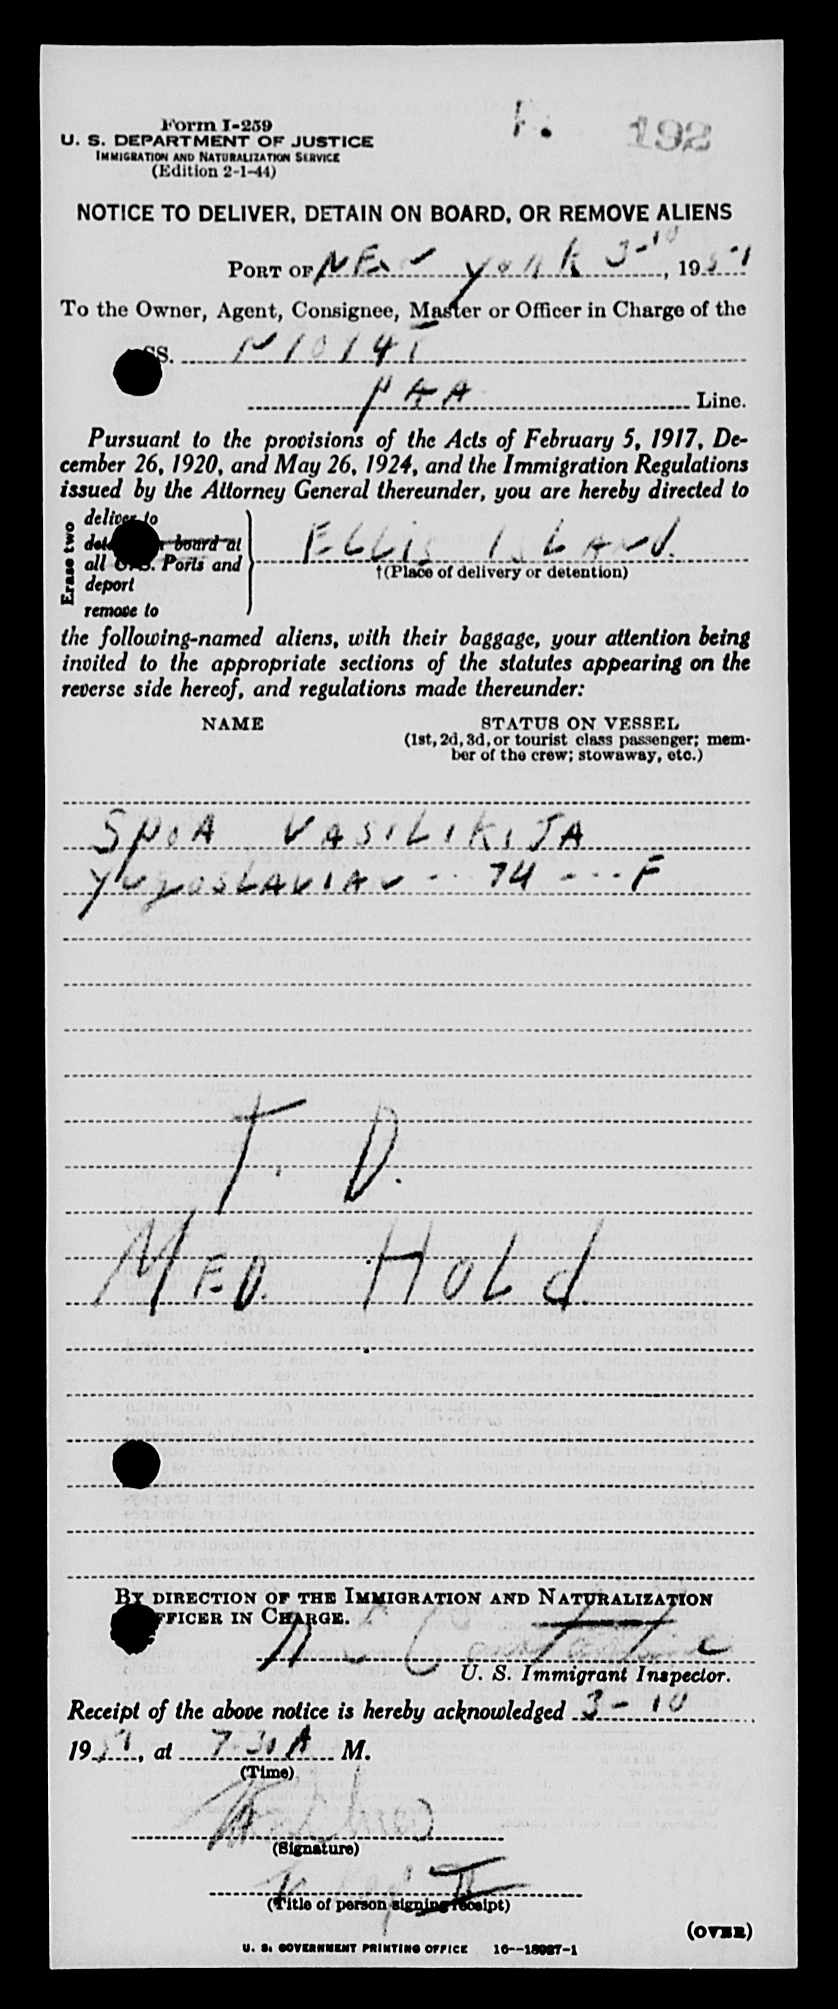 Form I-259
192
U. S. DEPARTMENT OF JUSTICE
IMMIGRATION AND NATURALIZATION SERVICE
(Edition 2-1-44)
NOTICE TO DELIVER, DETAIN ON BOARD, OR REMOVE ALIENS
PORT OF NEW YORK 3-10, 1951
To the Owner, Agent, Consignee, Master or Officer in Charge of the
SS. N1014T
PAA Line.
Pursuant to the provisions of the Acts of February 5, 1917, De-
cember 26, 1920, and May 26, 1924, and the Immigration Regulations
issued by the Attorney General thereunder, you are hereby directed to
Erase two
deliver to
board at
all U.S. Ports and
deport
remove to
ELLIS ISLAND.
†(Place of delivery or detention)
the following-named aliens, with their baggage, your attention being
invited to the appropriate sections of the statutes appearing on the
reverse side hereof, and regulations made thereunder:
NAME STATUS ON VESSEL
(1st, 2d, 3d, or tourist class passenger; mem-
ber of the crew; stowaway, etc.)
SPOA VASILIKIJA
YUGOSLAVIAN -- 74 --- F
T. D.
MED. HOLD.
BY DIRECTION OF THE IMMIGRATION AND NATURALIZATION
OFFICER IN CHARGE.
U. S. Immigrant Inspector.
Receipt of the above notice is hereby acknowledged 3-10
1951, at 7-30 A M.
(Time)
(Signature)
(Title of person signing receipt)
(OVER)
U. S. GOVERNMENT PRINTING OFFICE 16—18987-1